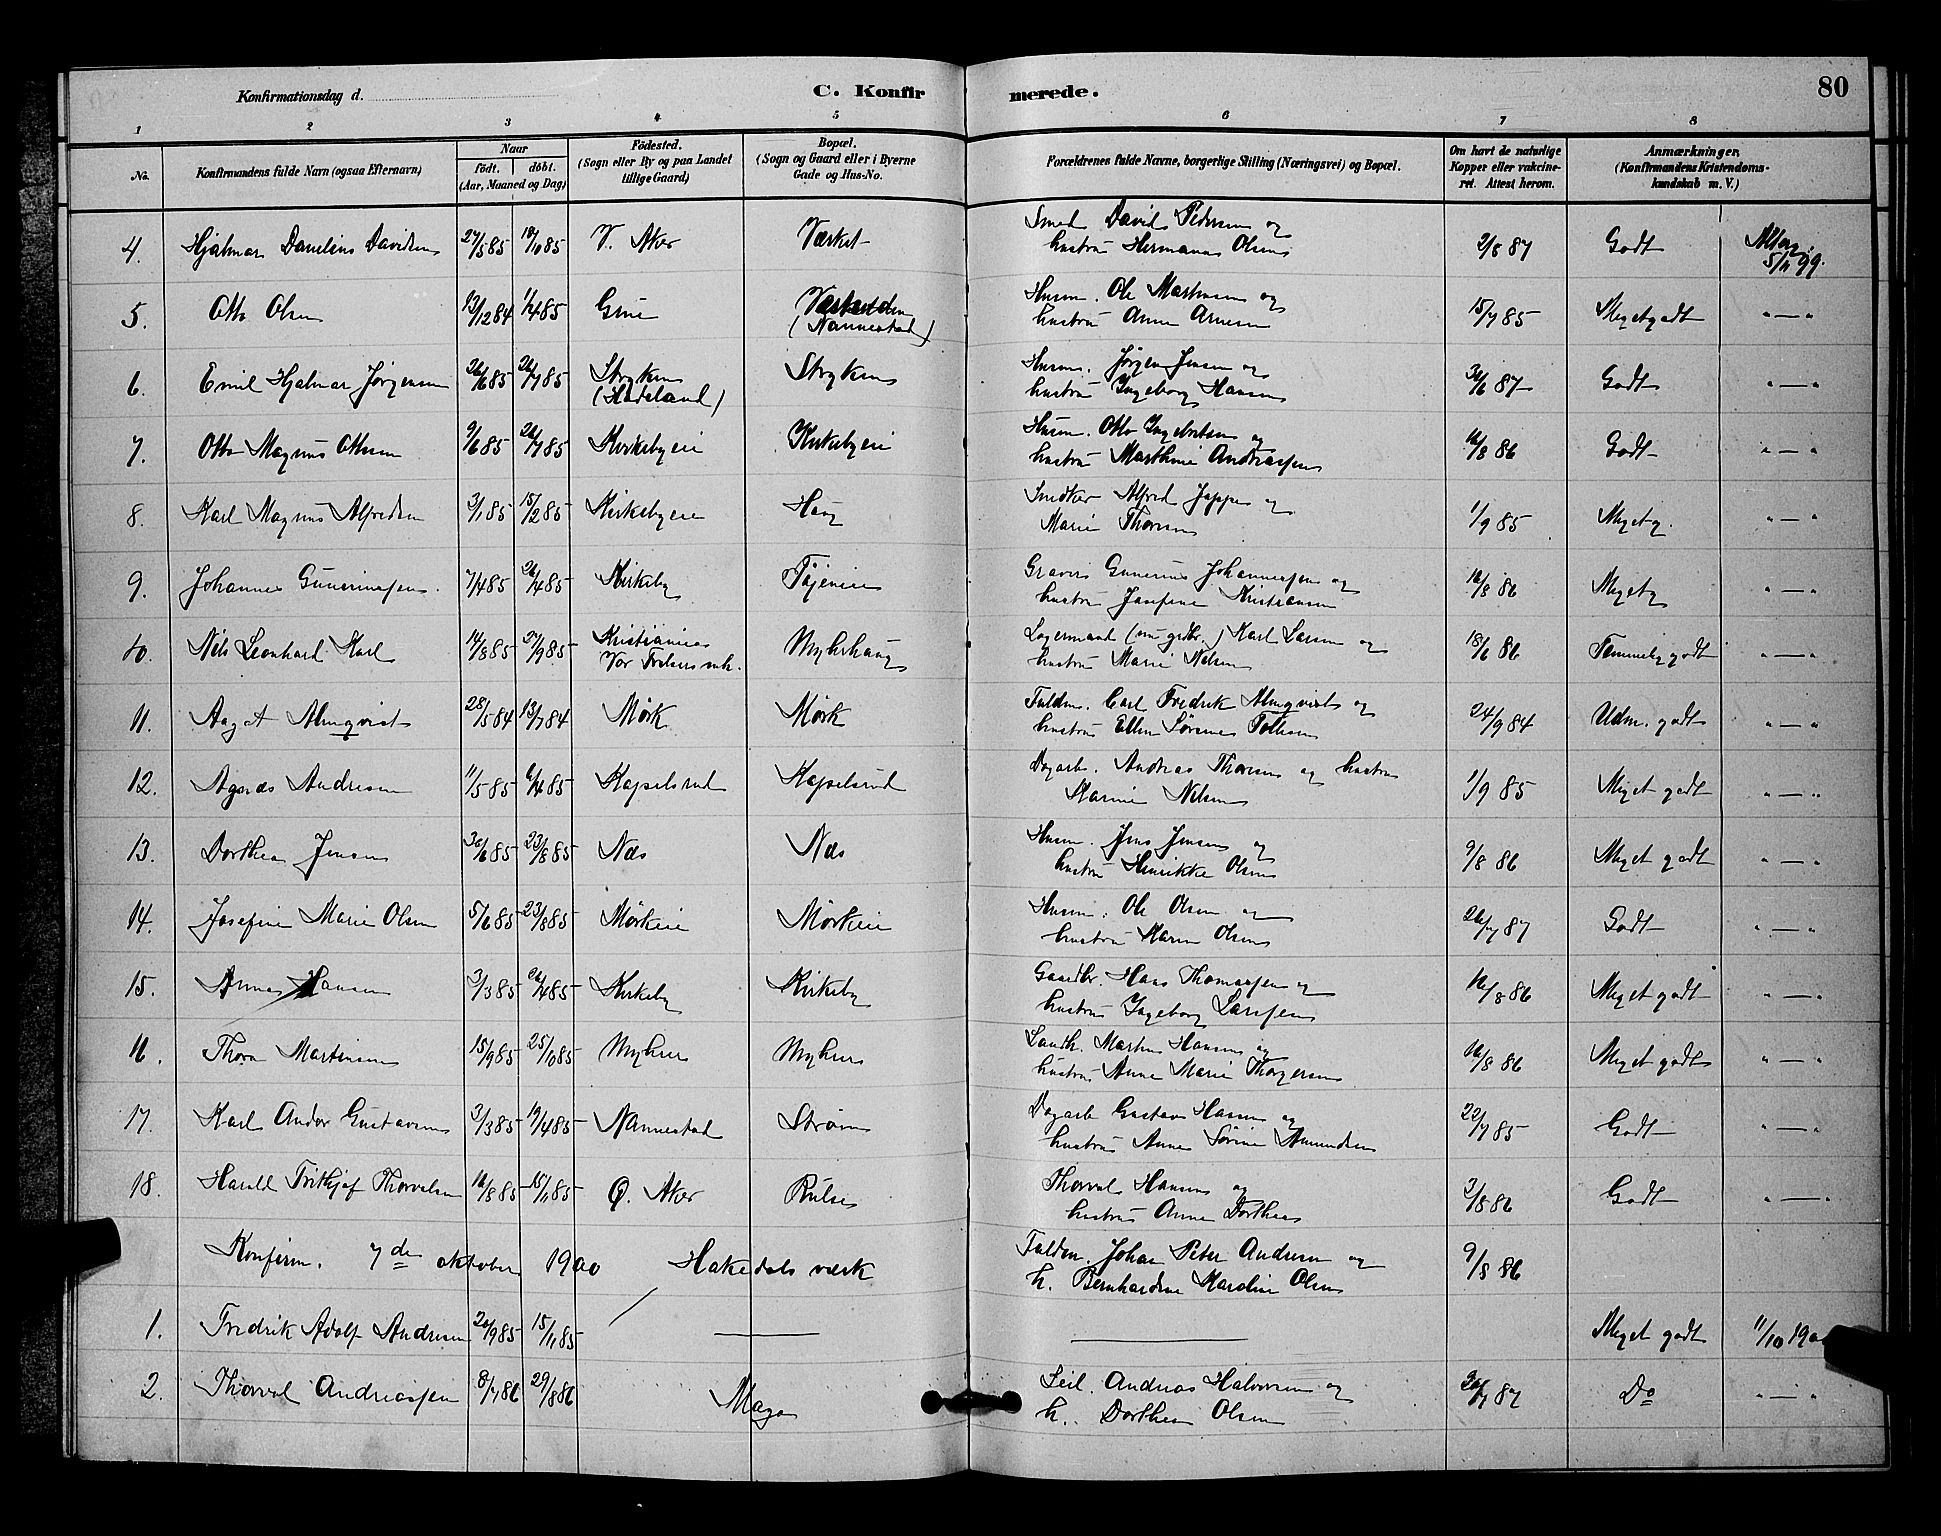 Konfirmationsdag d.
C. Konfirmerede.
80
1 2 3 4 5 6 7 8
No.
Konfirmandens fulde Navn (ogsaa Efternavn)
Naar
født. døbt.
(Aar, Maaned og Dag)
Fødested.
(Sogn eller By og paa Landet
tillige Gaard)
Bopæl.
(Sogn og Gaard eller i Byerne
Gade og Hus-No.
Forældrenes fulde Navne, borgerlige Stilling (Næringsvei) og Bopæl.
Om havt de naturlige
Kopper eller vakcine-
ret. Attest herom.
Anmærkninger,
(Konfirmandens Kristendoms-
kundskab m. V.)
4. Hjalmar Danelius Davidsen 27/5 85 18/10 85 V. Aker Værket Smed David Pedersen og
hustru Hermana Olsen 2/8 87 Godt
5/11 99.
5. Otto Olsen 13/12 84 1/4 85 Grue
(Nannestad) Husm. Ole Martinsen og
hustru Anne Arnesen 15/7 85 Megetgodt " — "
6. Emil Hjalmar Jørgensen 26/6 85 26/7 85 Stryken
(Hadeland) Stryken Husm. Jørgen Jensen og
hustru Ingeborg Hansen 30/6 87 Godt " — "
7. Otto Magnus Ottosen 9/6 85 26/7 85 Kirkebyeie Kirkebyeie Husm. Otto Ingebretsen og
hustru Marthine Andreassen 16/8 86 Godt " — "
8. Karl Magnus Alfredsen 3/1 85 15/2 85 Kirkebyeie Haug Snedker Alfred Jappe og
Marie Thoresen 1/9 85 Megetg. " — "
9. Johannes Gunerinssen. 7/4 85 26/4 85 Kirkeby Tøieneie Graver Gunerius Johannessen og
hustru Josefine Kristiansen 16/8 86 Megetg " — "
10. Nils Leonhard Karl 14/8 85 27/9 85 Kristiania
Vor Frelsers mh. Myhrhaug Lagermand (nu grdbr.) Karl Larsen og
hustru Marie Nelsen 18/6 86 Temmelig godt " — "
11. Aagot Almqvist 28/5 84 13/7 84 Mørk Mørk Fuldm. Carl Fredrik Almqvist og
hustru Ellen Sørine Tollefsen 24/9 84 Udm. godt " — "
12. Agnes Andresen 11/5 85 6/4 85 Kapelsrud Kapelsrud Dagarb. Andreas Thoresen og hustru
Karine Nelsen 1/9 85 Meget godt " — "
13. Dorthea Jensen 30/6 85 23/8 85 Næs Næs Husm. Jens Jensen og
hustru Henrikke Olsen 9/8 86 Meget godt " — "
14. Josefine Marie Olsen 5/6 85 23/8 85 Mørkeie Mørkeie Husm. Ole Olsen og
hustru Karen Olsen 26/7 87 Godt " — "
15. Anna Hansen 3/3 85 26/4 85 Kirkeby Kirkeby Gaardbr. Hans Thomassen og
hustru Ingeborg Larssen 16/8 86 Meget godt " — "
16. Thora Martinsen 15/9 85 25/10 85 Myhren Myhren Landh. Martin Hansen og
hustru Anne Marie Thorgersen 16/8 86 Meget godt " — "
17. Karl Andor Gustavsen 3/3 85 19/4 85 Nannestad Strøm Dagarb Gustav Hansen og
hustru Anne Sørine Amundsen 22/7 85 Godt " — "
18. Harald Frithjof Thorvalsen 16/8 85 15/11 85 Ø. Aker Thorval Hansen og
hustru Anne Dorthea 3/8 86 Godt " — "
Konfirm. 7de oktober 1900 Hakedals værk Fuldm. Johan Peter Andresen og
h. Bernhardine Karoline Olsen 9/8 86
1. Fredrik Adolf Andresen 20/9 85 15/11 85 — — Meget godt 11/10 190
2. Thorval Andreassen 8/7 86 29/8 86 Maga Andreas Halvorsen og
h. Dorthea Olsen 30/7 87 Do " — "